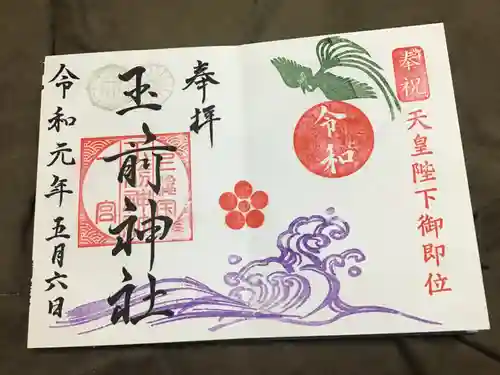 奉祝
天皇陛下御即位
令和
奉拝
玉前神社
令和元年五月六日